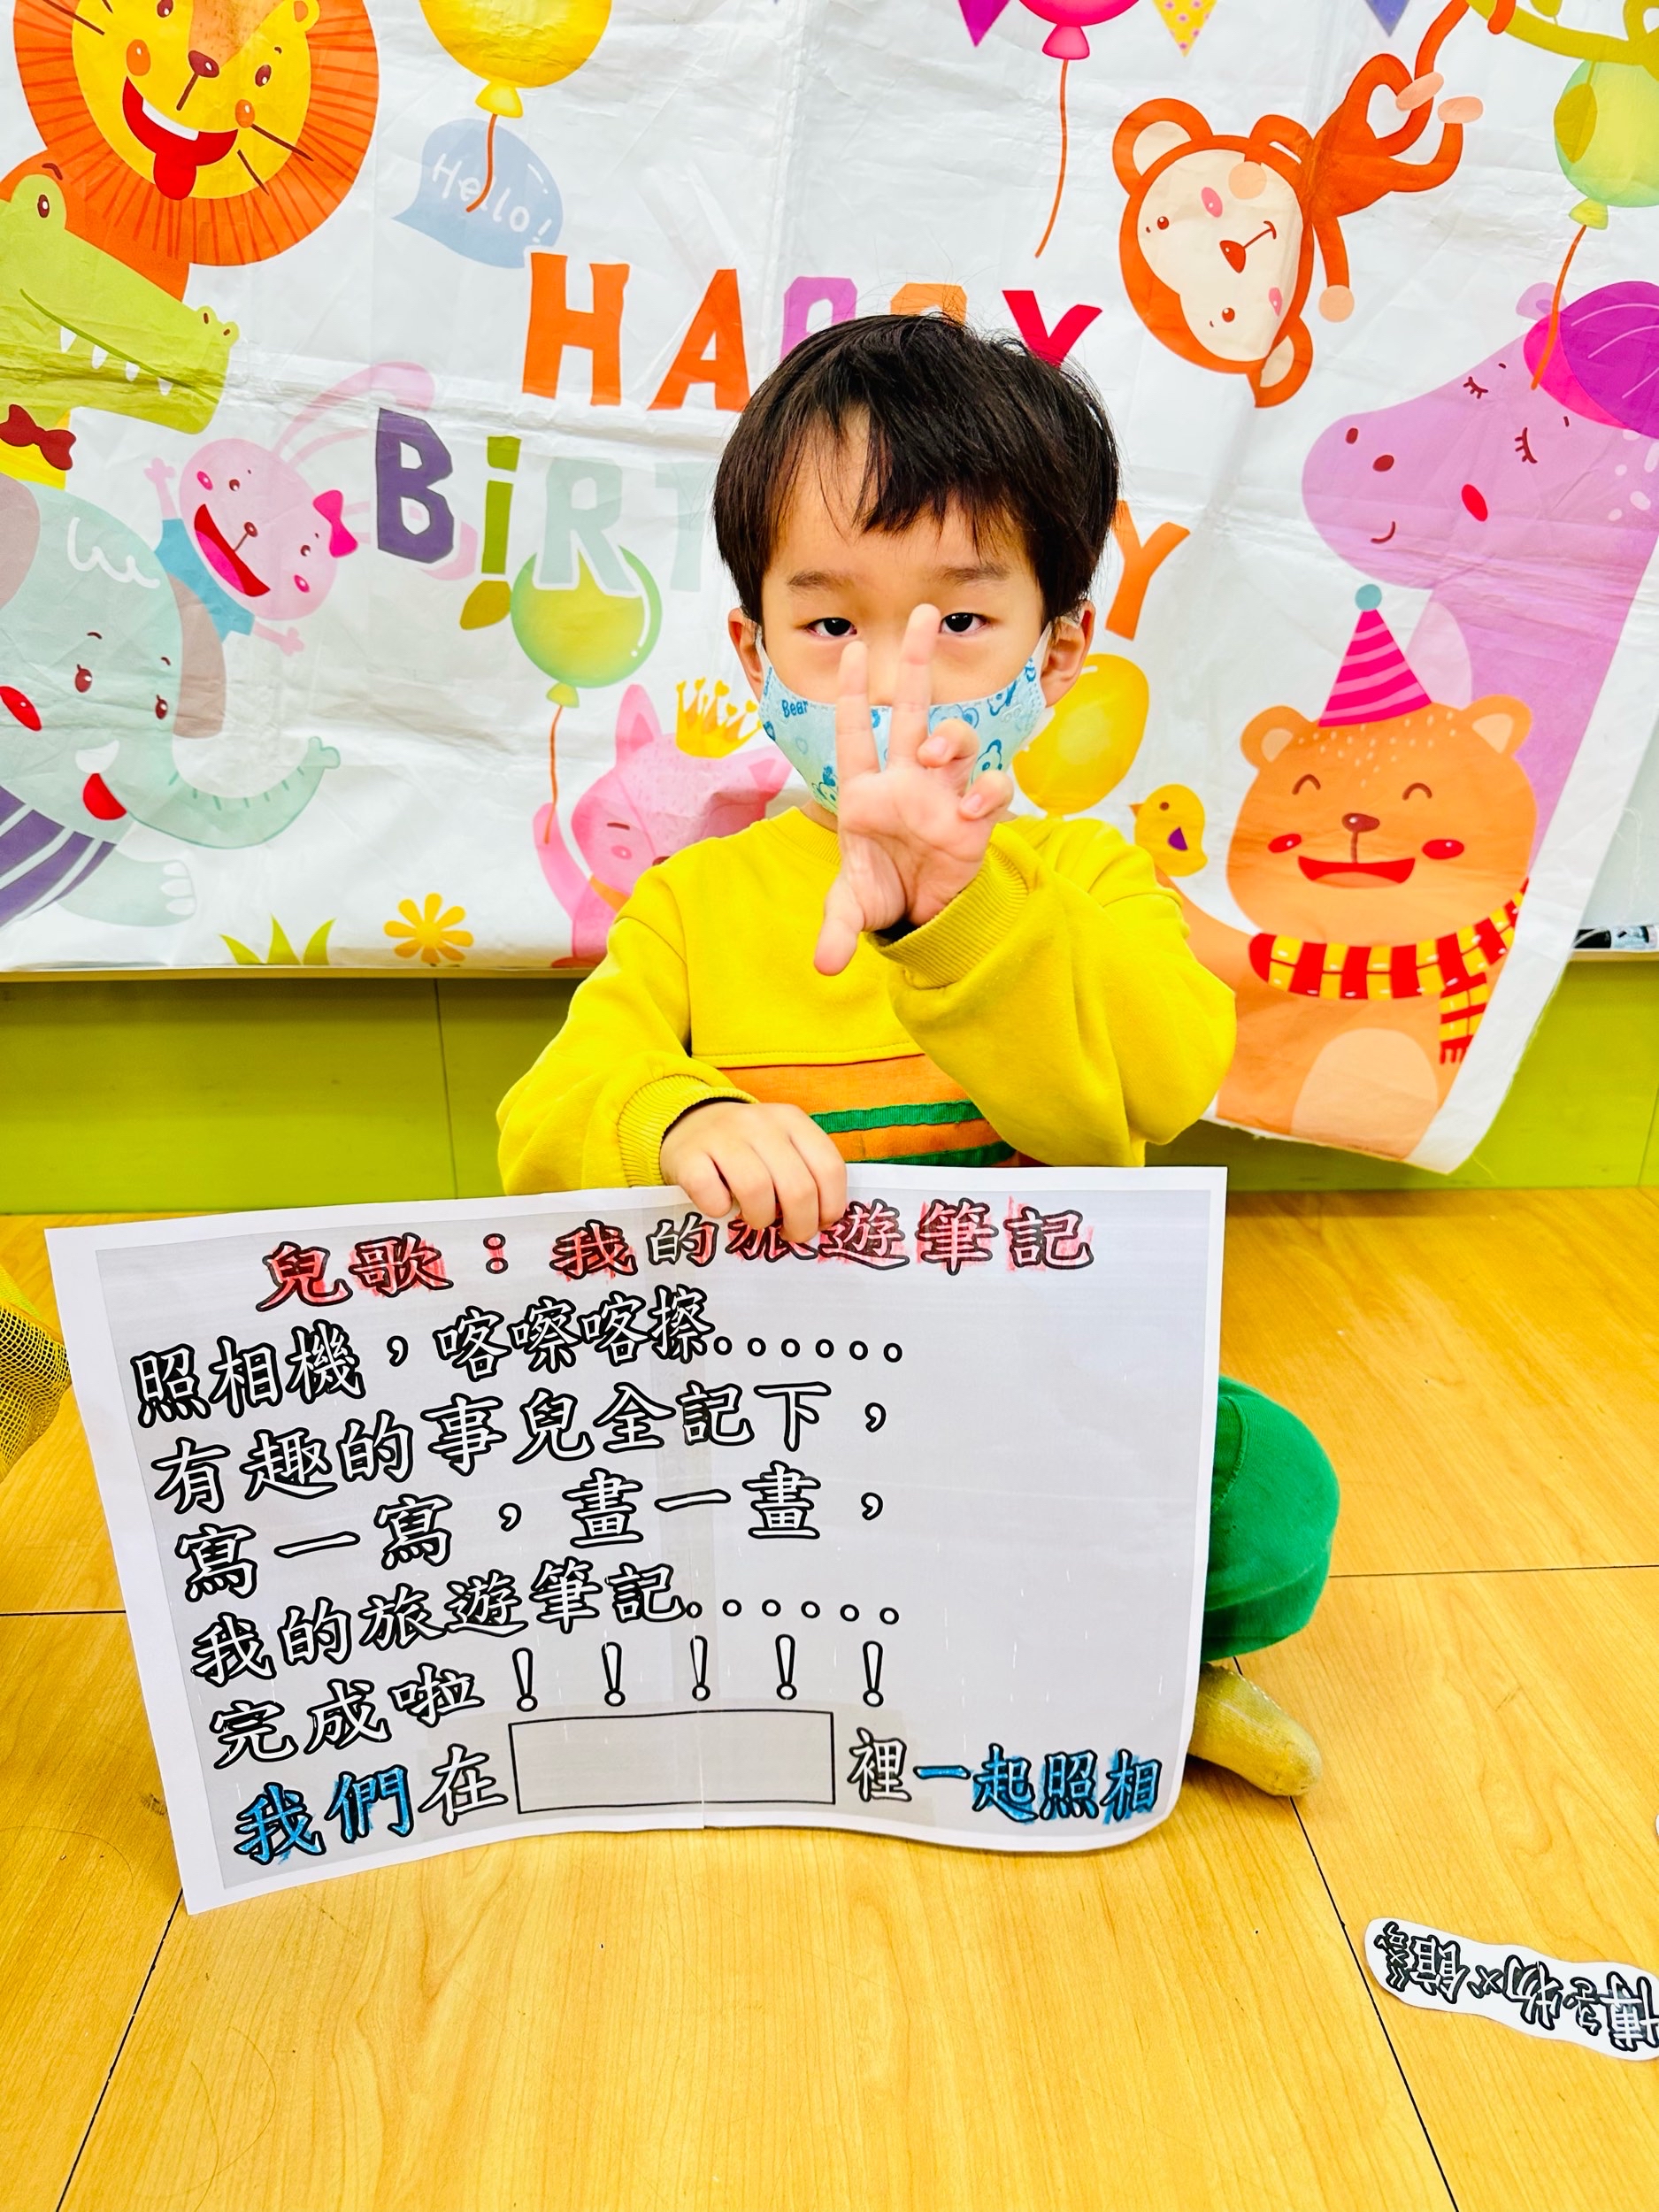 Hello!
HAPPY
BIRT Y
Bear
兒歌：我的旅遊筆記
照相機，喀嚓喀擦......
有趣的事兒全記下，
寫一寫，畫一畫，
我的旅遊筆記......
完成啦！！！！！
我們在 裡一起照相
博物館